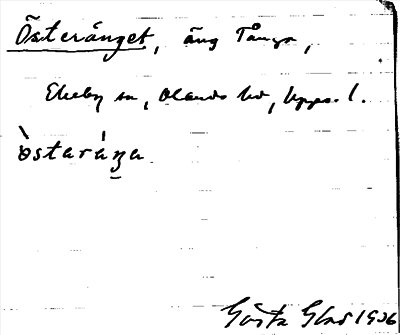 Österänget, äng Tånga,
Ekeby sn, Olands hd, Upps. l.
òstaráŋa
Gösta Glas 1936